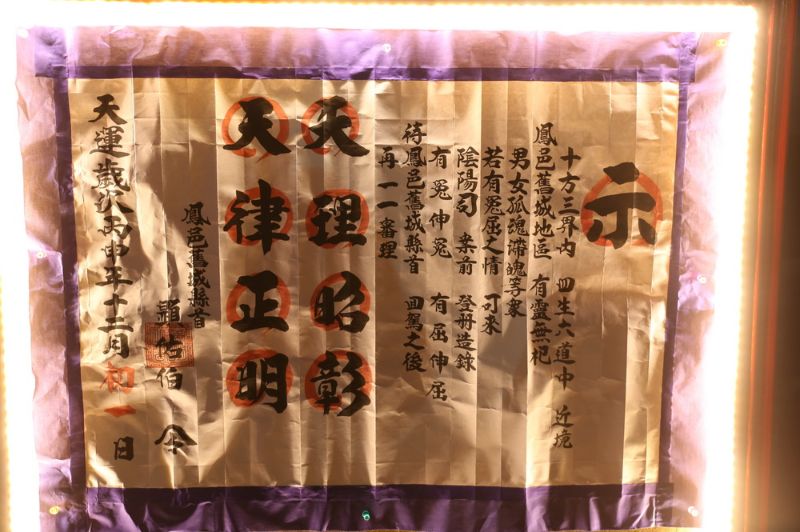 示
十方三界內 四生六道中 近境
鳳邑舊城地區 有靈無祀
男女孤魂滯魄等衆
若有冤屈之情 可來
陰陽司 案前 登册造錄
有冤伸冤 有屈伸屈
待鳳邑舊城縣首 回駕之後
再一一審理
天理昭彰
天律正明
鳳邑舊城縣首
顯佑伯 令
天運歲次丙申年十二月初一日